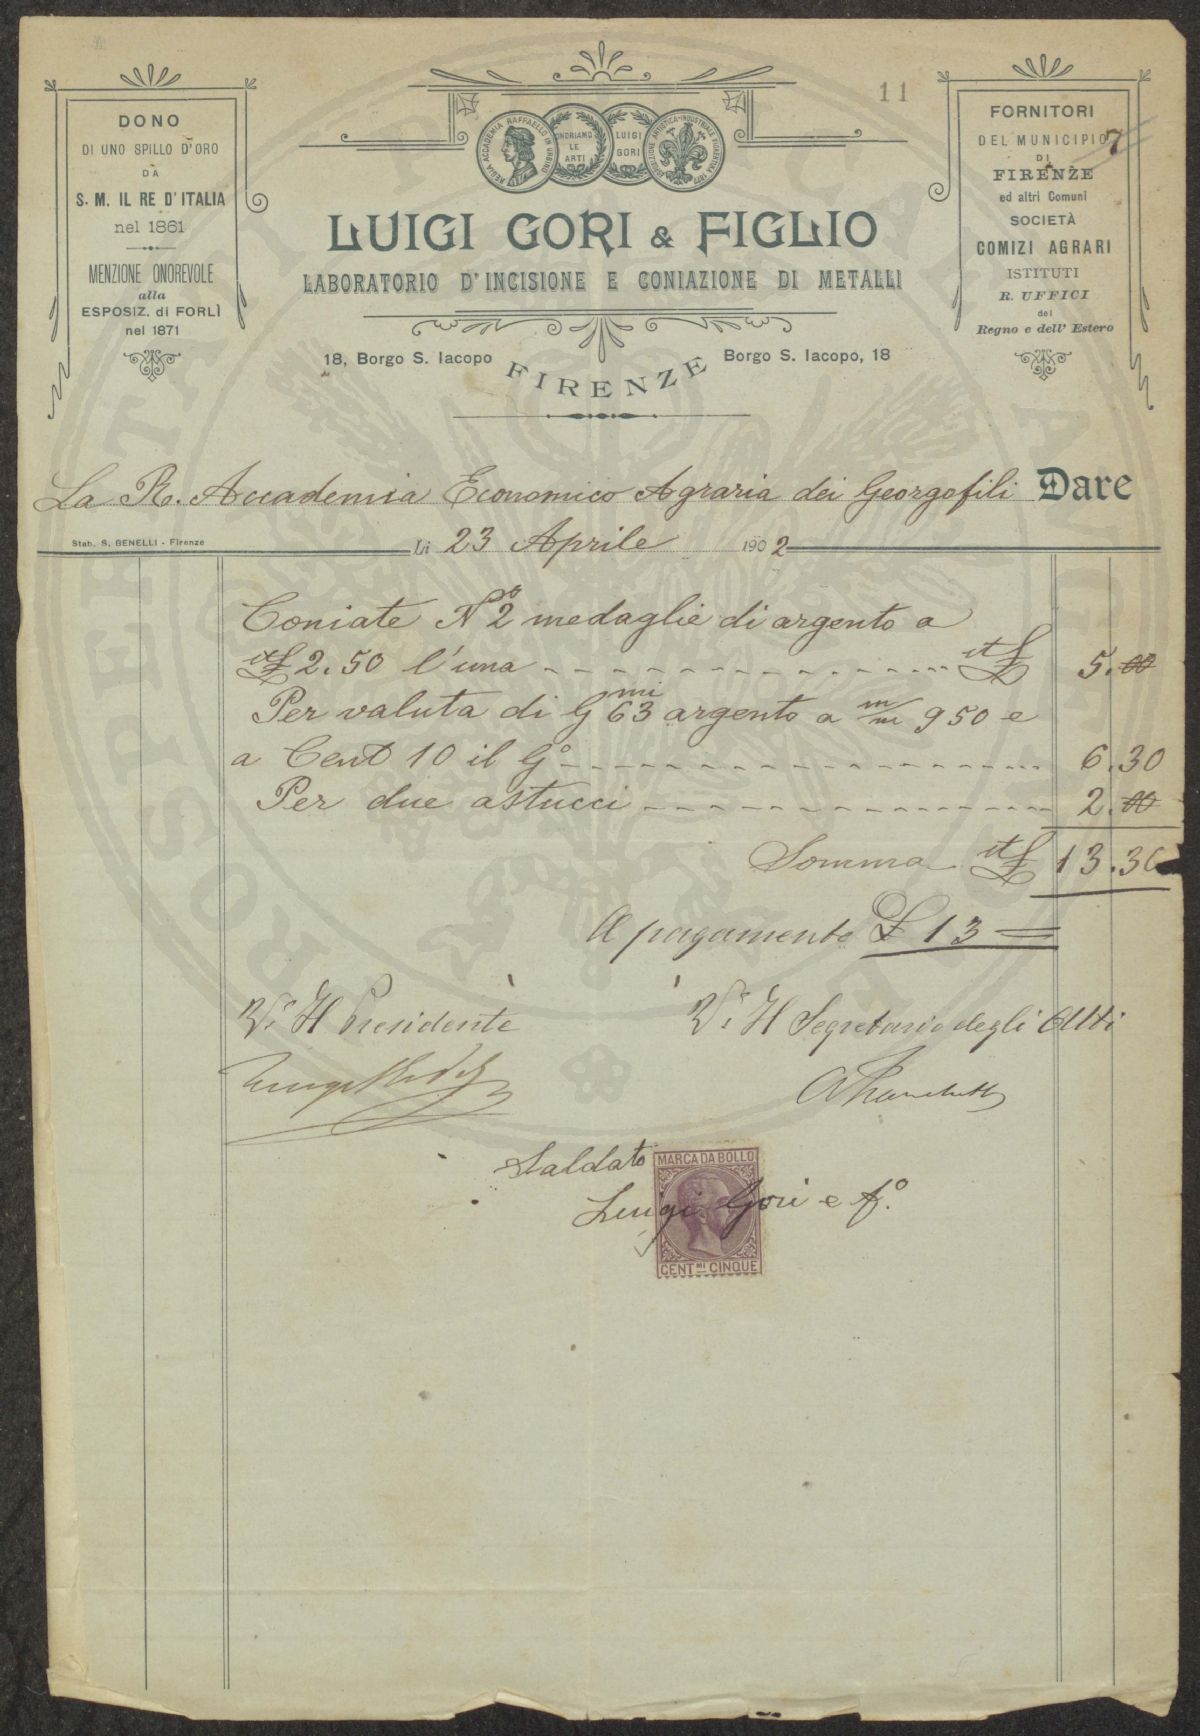 11
7
DONO
DI UNO SPILLO D'ORO
DA
S. M. IL RE D'ITALIA
nel 1861
MENZIONE ONOREVOLE
alla
ESPOSIZ. di FORLÌ
nel 1871
REGIA ACCADEMIA RAFFAELLO IN URBINO
ONORIAMO
LE
ARTI
LUIGI
GORI
ESPOSIZIONE ARTISTICA-INDUSTRIALE FIORENTINA
LUIGI GORI & FIGLIO
LABORATORIO D'INCISIONE E CONIAZIONE DI METALLI
18, Borgo S. Iacopo FIRENZE Borgo S. Iacopo, 18
FORNITORI
DEL MUNICIPIO
DI
FIRENZE
ed altri Comuni
SOCIETÀ
COMIZI AGRARI
ISTITUTI
R. UFFICI
del
Regno e dell' Estero
La R. Accademia Economico Agraria dei Georgofili Dare
Stab. S. BENELLI - Firenze
Li 23 Aprile 1902
Coniate N° 2 medaglie di argento a
it£ 2.50 l'una it£ 5.00
Per valuta di Gmi 63 argento a m/m 950 e
a Cent 10 il G° 6.30
Per due astucci 2.00
Somma it£ 13.30
A pagamento £ 13 =
V° Il Presidente
V° Il Segretario degli Atti
Saldato
Luigi Gori e f.°
MARCA DA BOLLO
CENT.MI CINQUE